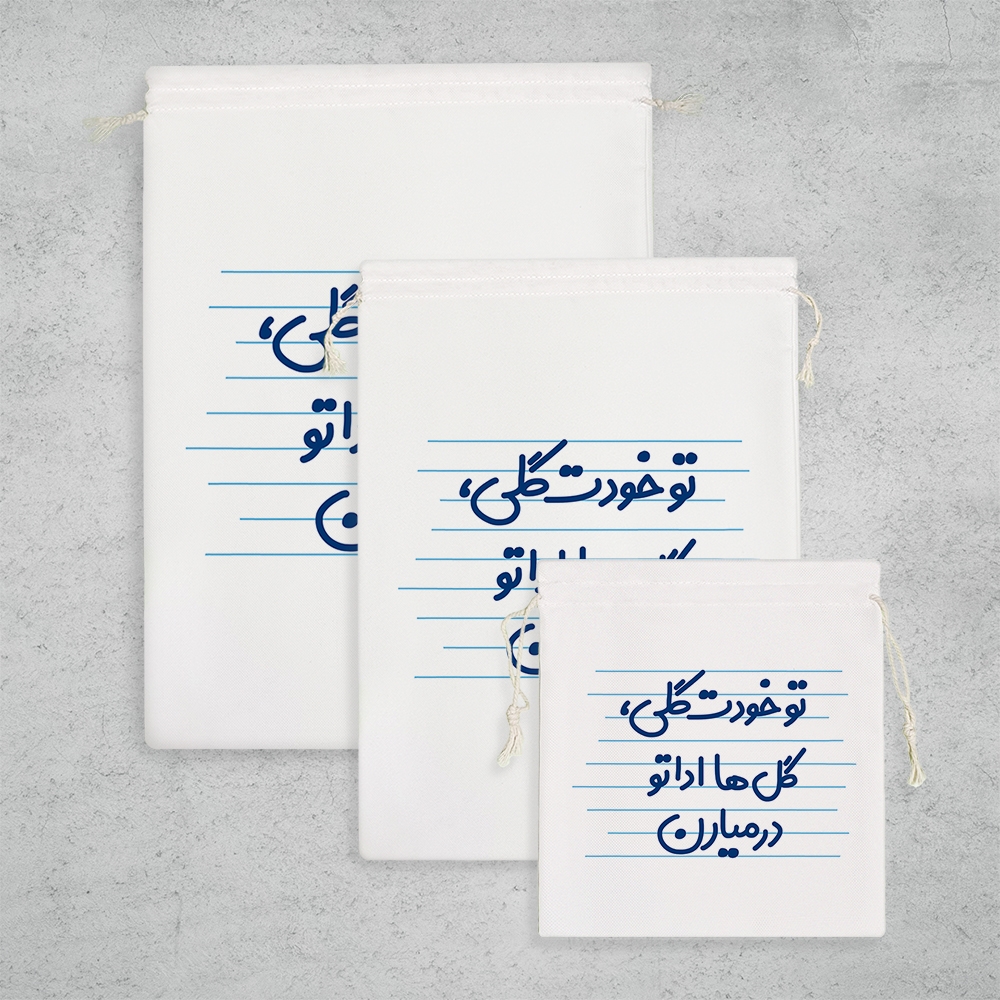 گلی،
اتو
ن
تو خودت گلی،
اداتو
ن
تو خودت گلی،
گل ها اداتو
درمیارن